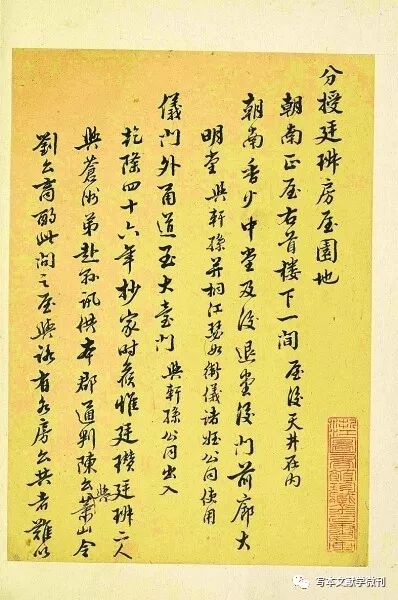 分授廷房屋園地
朝南正屋右首樓下一間 屋後天井在內
朝南香火中堂及後退堂後門前廊大
明堂 與軒孫并桐江瑟如衛儀諸姪公同使用
儀門外甬道至大臺門 與軒孫公同出入
乾隆四十六年抄家時候惟廷瓚廷二人
與蒼洲弟赴訊供本郡通判陳公與蕭山令
劉公商酌此間之屋與有各房公共者難以
写本文献学微刊